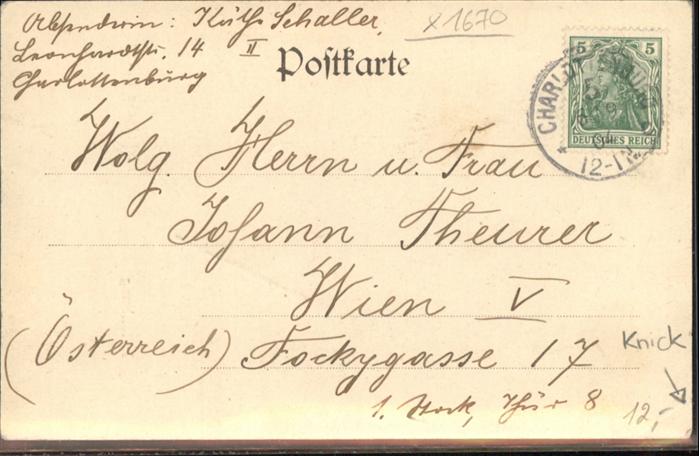 Absenderin: Käthe Schaller,
Leonhardtstr. 14 II
Charlottenburg
x1670
Postkarte
5 5
DEUTSCHES REICH
CHARLOTTENBURG
12-1N
Wolg. Herrn u. Frau
Johann Theurer
Wien V
(Österreich) Fockygasse 17
1. Stock, Thür 8
Knick
12,-